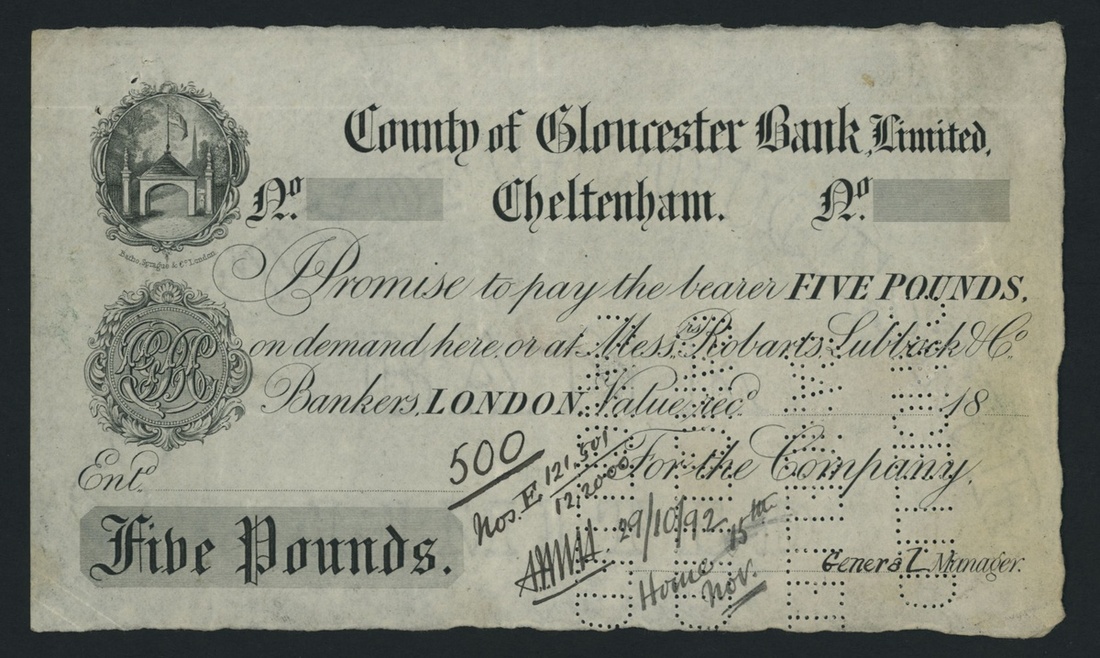 County of Gloucester Bank, Limited,
Nº. Cheltenham. Nº.
Batho, Sprague & Cº. London
I Promise to pay the bearer FIVE POUNDS,
on demand here, or at Messrs. Robarts, Lubbock & Cº.
Bankers, LONDON. Value recd. 18
500
Entd.
For the Company,
Nos. E 121,501
12,2000
Five Pounds.
29/10/92
Home 15th
Nov.
General Manager.